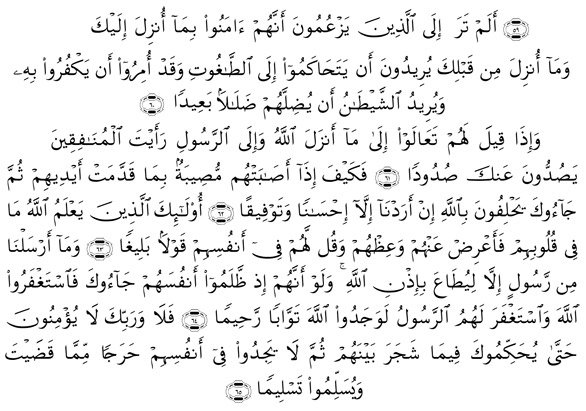 ﴿٥٩﴾ أَلَمْ تَرَ إِلَى الَّذِينَ يَزْعُمُونَ أَنَّهُمْ ءَامَنُوا۟ بِمَآ أُنزِلَ إِلَيْكَ
وَمَآ أُنزِلَ مِن قَبْلِكَ يُرِيدُونَ أَن يَتَحَاكَمُوٓا۟ إِلَى الطَّـٰغُوتِ وَقَدْ أُمِرُوٓا۟ أَن يَكْفُرُوا۟ بِهِۦ
وَيُرِيدُ الشَّيْطَـٰنُ أَن يُضِلَّهُمْ ضَلَـٰلًۢا بَعِيدًا ﴿٦٠﴾
وَإِذَا قِيلَ لَهُمْ تَعَالَوْا۟ إِلَىٰ مَآ أَنزَلَ اللَّهُ وَإِلَى الرَّسُولِ رَأَيْتَ الْمُنَـٰفِقِينَ
يَصُدُّونَ عَنكَ صُدُودًا ﴿٦١﴾ فَكَيْفَ إِذَآ أَصَـٰبَتْهُم مُّصِيبَةٌۢ بِمَا قَدَّمَتْ أَيْدِيهِمْ ثُمَّ
جَآءُوكَ يَحْلِفُونَ بِاللَّهِ إِنْ أَرَدْنَآ إِلَّآ إِحْسَـٰنًا وَتَوْفِيقًا ﴿٦٢﴾ أُو۟لَـٰٓئِكَ الَّذِينَ يَعْلَمُ اللَّهُ مَا
فِى قُلُوبِهِمْ فَأَعْرِضْ عَنْهُمْ وَعِظْهُمْ وَقُل لَّهُمْ فِىٓ أَنفُسِهِمْ قَوْلًۢا بَلِيغًا ﴿٦٣﴾ وَمَآ أَرْسَلْنَا
مِن رَّسُولٍ إِلَّا لِيُطَاعَ بِإِذْنِ اللَّهِ ۚ وَلَوْ أَنَّهُمْ إِذ ظَّلَمُوٓا۟ أَنفُسَهُمْ جَآءُوكَ فَاسْتَغْفَرُوا۟
اللَّهَ وَاسْتَغْفَرَ لَهُمُ الرَّسُولُ لَوَجَدُوا۟ اللَّهَ تَوَّابًا رَّحِيمًا ﴿٦٤﴾ فَلَا وَرَبِّكَ لَا يُؤْمِنُونَ
حَتَّىٰ يُحَكِّمُوكَ فِيمَا شَجَرَ بَيْنَهُمْ ثُمَّ لَا يَجِدُوا۟ فِىٓ أَنفُسِهِمْ حَرَجًا مِّمَّا قَضَيْتَ
وَيُسَلِّمُوا۟ تَسْلِيمًا ﴿٦٥﴾